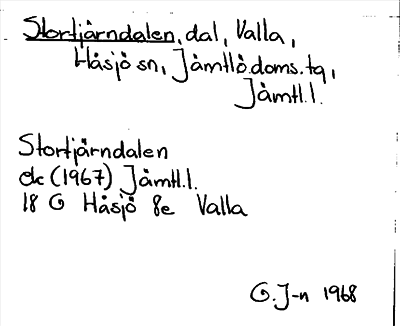 Stortjärndalen, dal, Valla,
Håsjö sn, Jämtlö.doms.tg,
Jämtl.l.
Stortjärndalen
ek (1967) Jämtl.l.
18 G Håsjö 8e Valla
G.J-n 1968